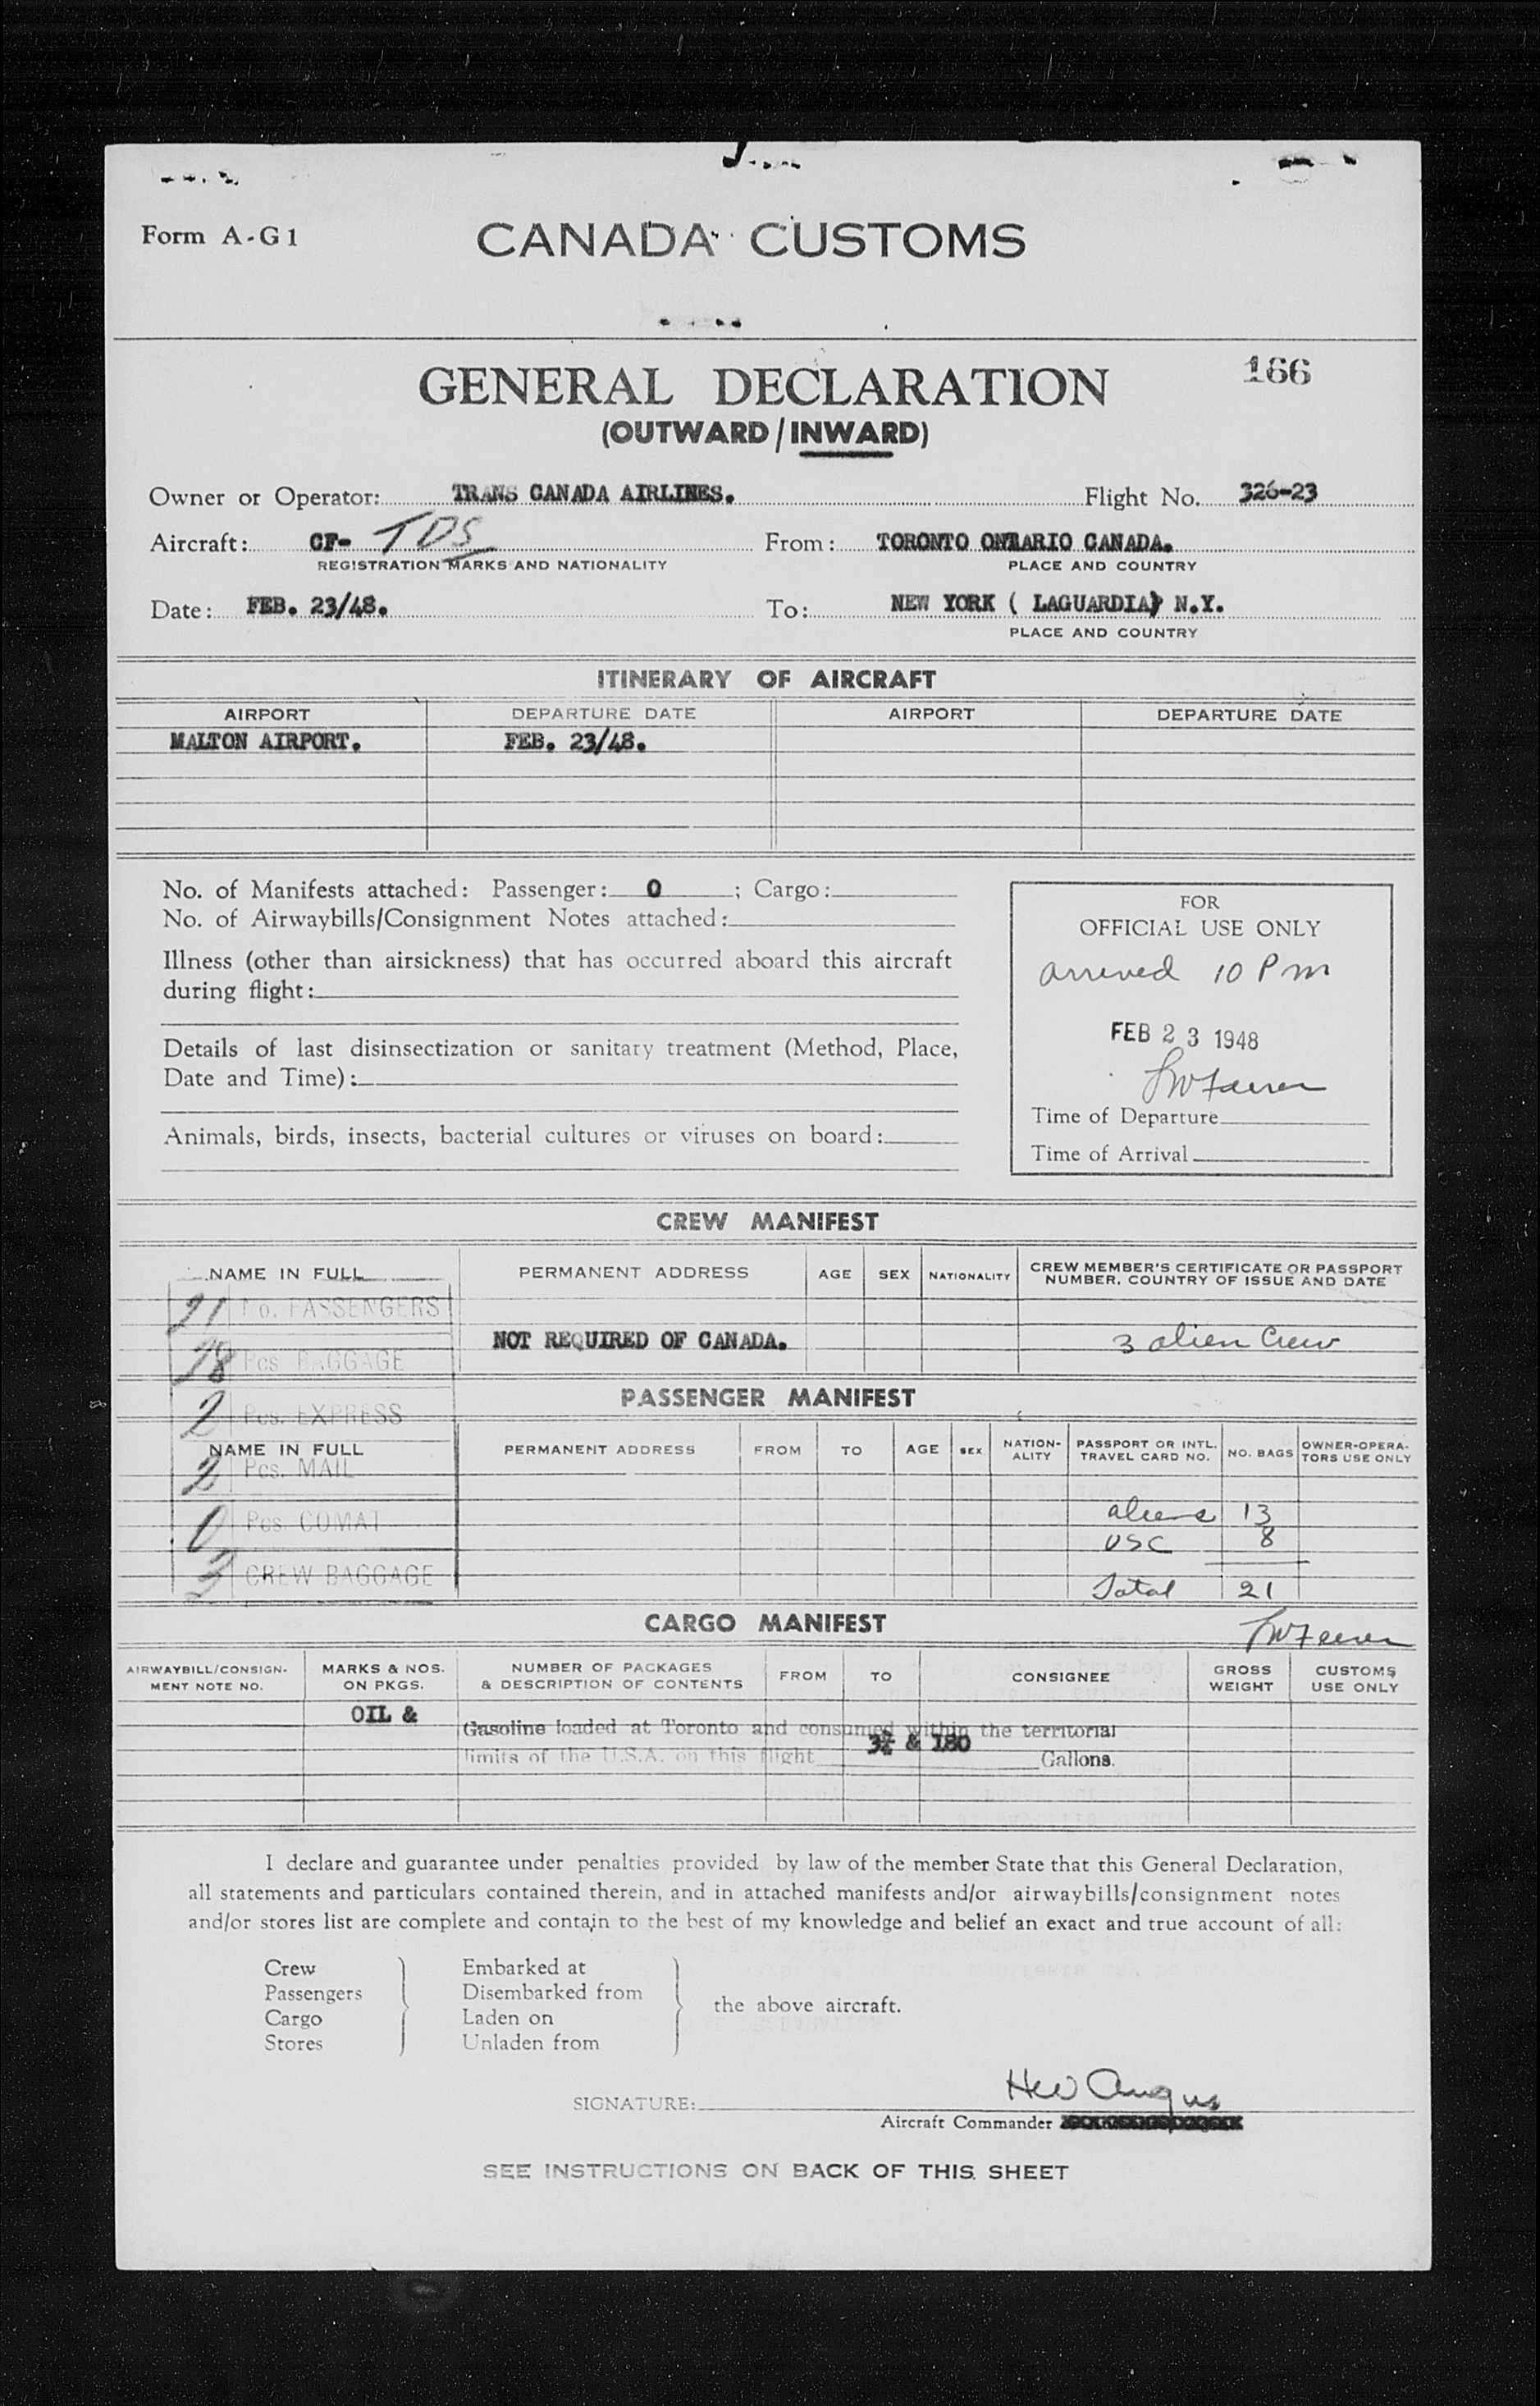 Form A-G1
CANADA CUSTOMS
166
GENERAL DECLARATION
(OUTWARD/INWARD)
Owner or Operator: TRANS CANADA AIRLINES. Flight No. 326-23
Aircraft: CF- TDS From: TORONTO ONTARIO CANADA.
REGISTRATION MARKS AND NATIONALITY PLACE AND COUNTRY
Date: FEB. 23/48. To: NEW YORK ( LAGUARDIA) N.Y.
PLACE AND COUNTRY
ITINERARY OF AIRCRAFT
AIRPORT DEPARTURE DATE AIRPORT DEPARTURE DATE
MALTON AIRPORT. FEB. 23/48.
No. of Manifests attached: Passenger: 0 ; Cargo:
No. of Airwaybills/Consignment Notes attached:
Illness (other than airsickness) that has occurred aboard this aircraft
during flight:
Details of last disinsectization or sanitary treatment (Method, Place,
Date and Time):
Animals, birds, insects, bacterial cultures or viruses on board:
FOR
OFFICIAL USE ONLY
arrived 10 Pm
FEB 23 1948
Time of Departure
Time of Arrival
CREW MANIFEST
NAME IN FULL PERMANENT ADDRESS AGE SEX NATIONALITY CREW MEMBER'S CERTIFICATE OR PASSPORT
NUMBER, COUNTRY OF ISSUE AND DATE
21 No. PASSENGERS
NOT REQUIRED OF CANADA. 3 alien Crew
28 Pcs BAGGAGE
PASSENGER MANIFEST
2 Pcs. EXPRESS
NAME IN FULL PERMANENT ADDRESS FROM TO AGE SEX NATION-
ALITY PASSPORT OR INTL.
TRAVEL CARD NO. NO. BAGS OWNER-OPERA-
TORS USE ONLY
2 Pcs. MAIL
aliens 13
0 Pcs. COMAT
USC 8
3 CREW BAGGAGE
Total 21
CARGO MANIFEST
AIRWAYBILL/CONSIGN-
MENT NOTE NO. MARKS & NOS.
ON PKGS. NUMBER OF PACKAGES
& DESCRIPTION OF CONTENTS FROM TO CONSIGNEE GROSS
WEIGHT CUSTOMS
USE ONLY
OIL & Gasoline loaded at Toronto and consumed within the territorial
limits of the U.S.A. on this flight & 180 Gallons.
I declare and guarantee under penalties provided by law of the member State that this General Declaration,
all statements and particulars contained therein, and in attached manifests and/or airwaybills/consignment notes
and/or stores list are complete and contain to the best of my knowledge and belief an exact and true account of all:
Crew Embarked at
Passengers Disembarked from
the above aircraft.
Cargo Laden on
Stores Unladen from
SIGNATURE: HW Angus
Aircraft Commander
SEE INSTRUCTIONS ON BACK OF THIS SHEET